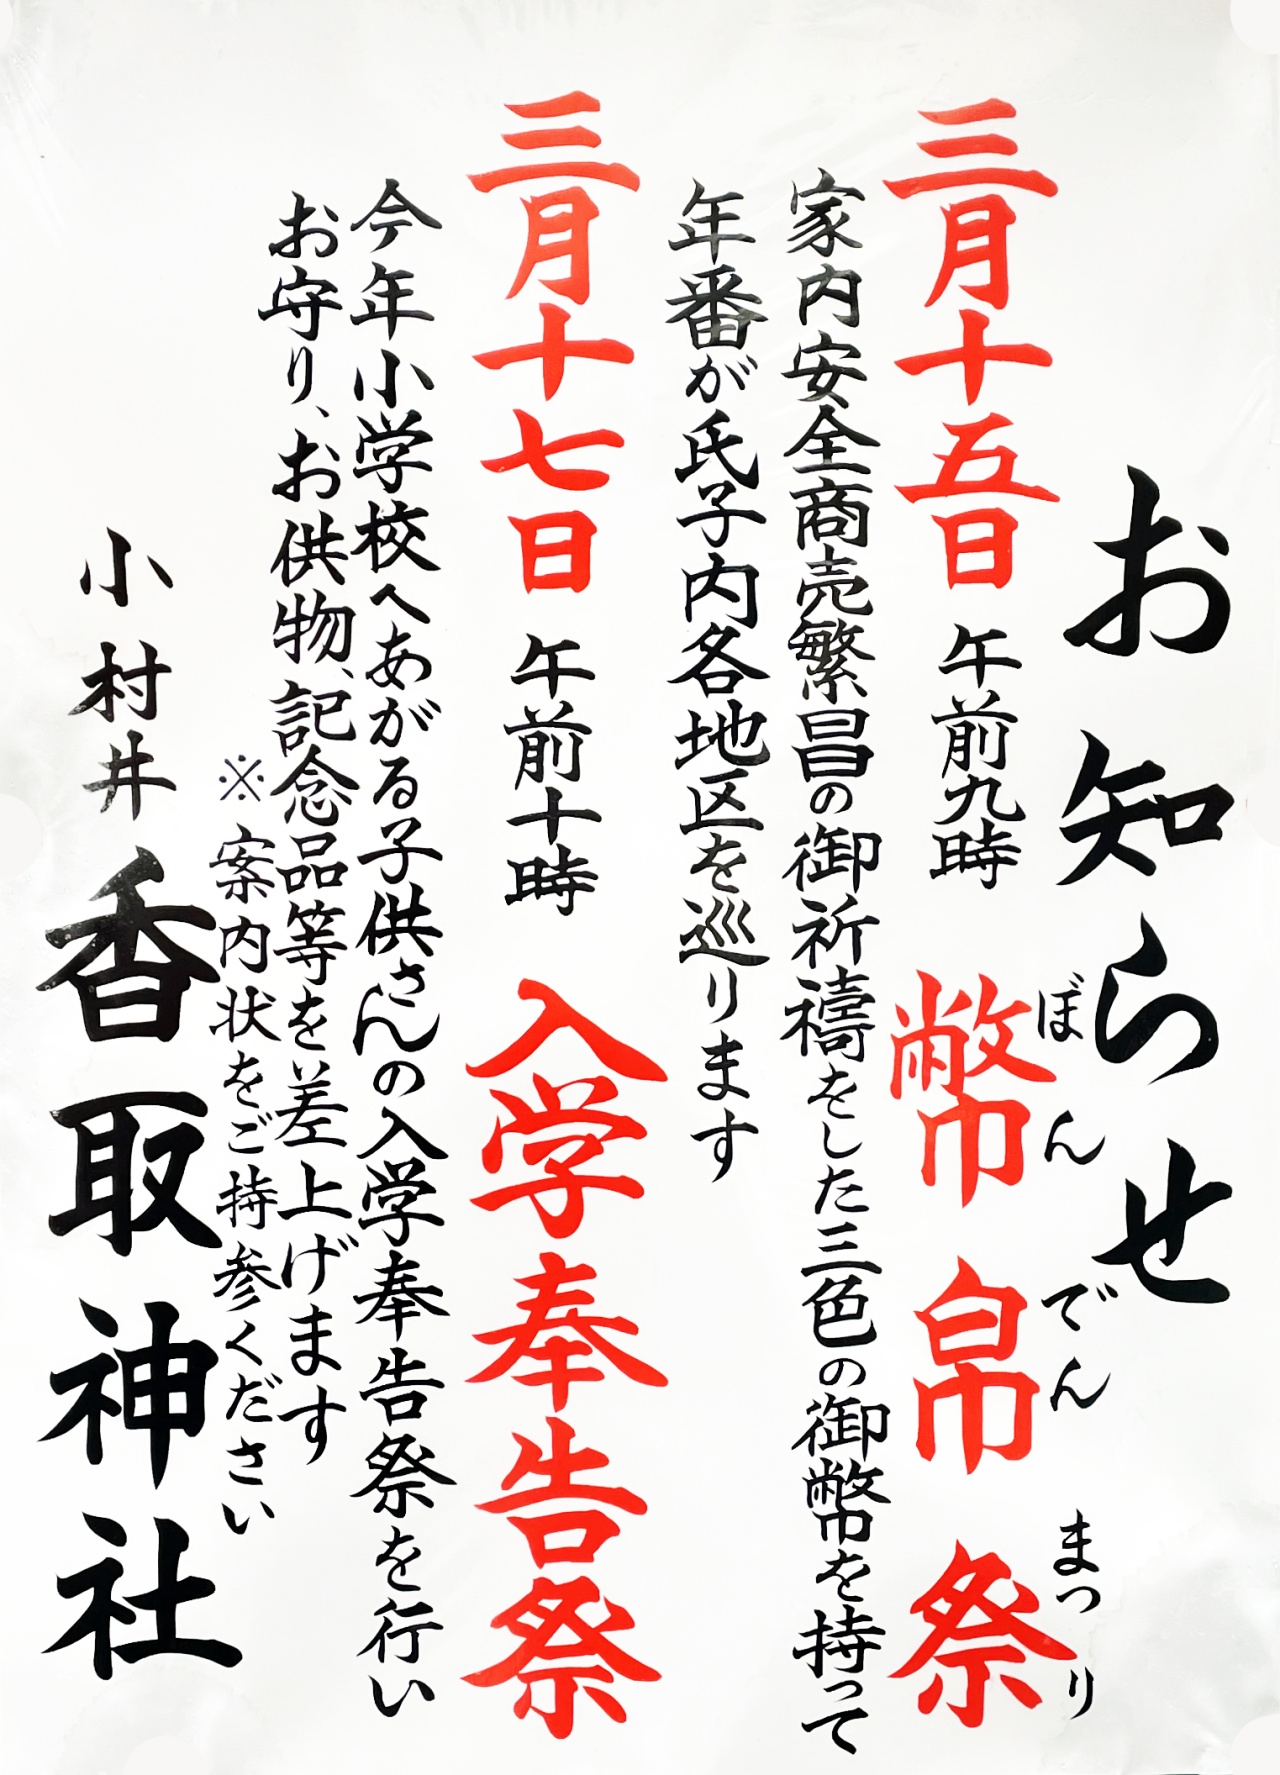 お知らせ
三月十五日 午前九時 幣帛祭
ぼんでんまつり
家内安全商売繁昌の御祈禱をした三色の御幣を持って
年番が氏子内各地区を巡ります
三月十七日 午前十時 入学奉告祭
今年小学校へあがる子供さんの入学奉告祭を行い
お守り、お供物、記念品等を差上げます
※案内状をご持参ください
小村井 香取神社